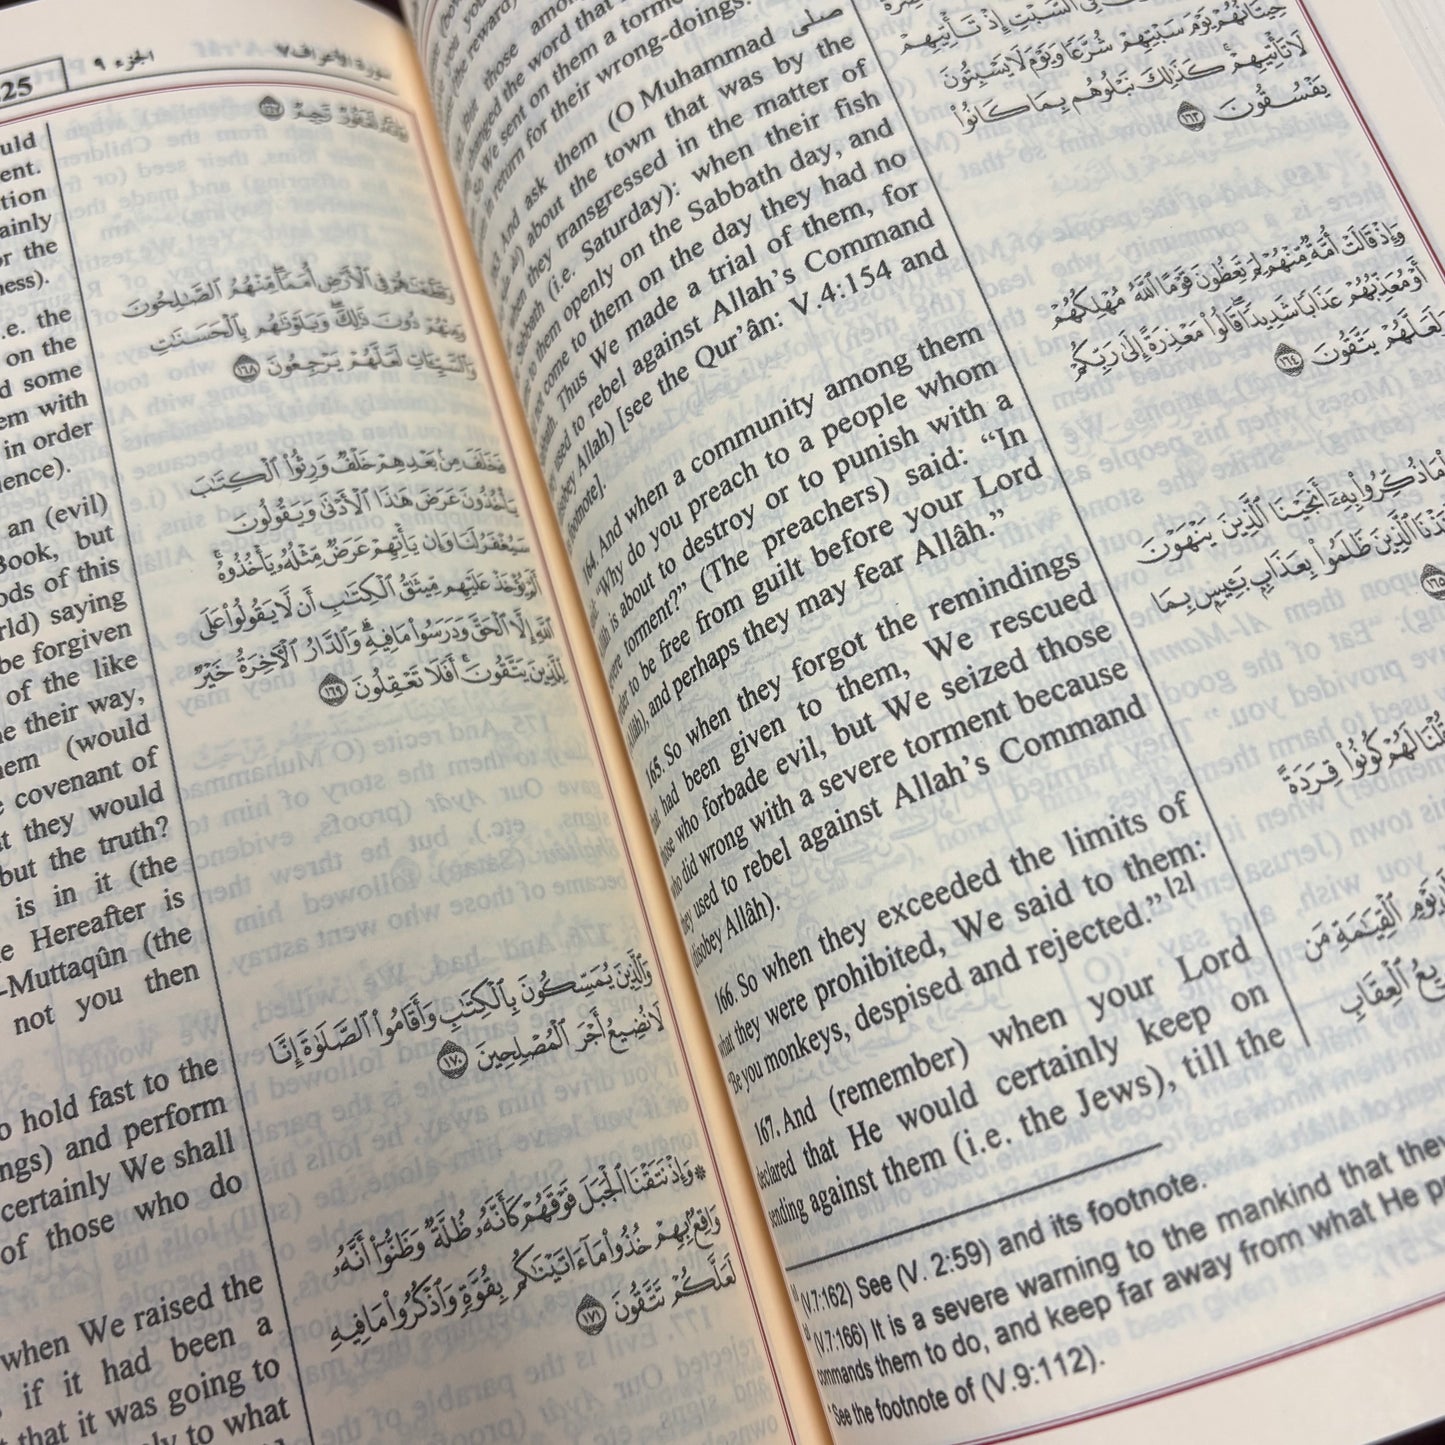 25
الجزء ٩
سورة الأعراف ٧
ould
ent.
tion
ainly
or the
ness).
.e. the
on the
d some
em with
in order
ience).
an (evil)
Book, but
ods of this
rld) saying
be forgiven
of the like
e their way,
em (would
e covenant of
t they would
but the truth?
is in it (the
e Hereafter is
-Muttaqûn (the
not you then
o hold fast to the
ngs) and perform
certainly We shall
of those who do
when We raised the
if it had been a
that it was going to
ly to what
وَقَطَّعْنَٰهُمْ فِي ٱلْأَرْضِ أُمَمًا مِّنْهُمُ ٱلصَّٰلِحُونَ
وَمِنْهُمْ دُونَ ذَٰلِكَ وَبَلَوْنَٰهُم بِٱلْحَسَنَٰتِ
وَٱلسَّيِّـَٔاتِ لَعَلَّهُمْ يَرْجِعُونَ ١٦٨
فَخَلَفَ مِنۢ بَعْدِهِمْ خَلْفٌ وَرِثُوا۟ ٱلْكِتَٰبَ
يَأْخُذُونَ عَرَضَ هَٰذَا ٱلْأَدْنَىٰ وَيَقُولُونَ
سَيُغْفَرُ لَنَا وَإِن يَأْتِهِمْ عَرَضٌ مِّثْلُهُۥ يَأْخُذُوهُ ۚ
أَلَمْ يُؤْخَذْ عَلَيْهِم مِّيثَٰقُ ٱلْكِتَٰبِ أَن لَّا يَقُولُوا۟ عَلَى
ٱللَّهِ إِلَّا ٱلْحَقَّ وَدَرَسُوا۟ مَا فِيهِ ۗ وَٱلدَّارُ ٱلْـَٔاخِرَةُ خَيْرٌ
لِّلَّذِينَ يَتَّقُونَ ۗ أَفَلَا تَعْقِلُونَ ١٦٩
وَٱلَّذِينَ يُمَسِّكُونَ بِٱلْكِتَٰبِ وَأَقَامُوا۟ ٱلصَّلَوٰةَ إِنَّا
لَا نُضِيعُ أَجْرَ ٱلْمُصْلِحِينَ ١٧٠
* وَإِذْ نَتَقْنَا ٱلْجَبَلَ فَوْقَهُمْ كَأَنَّهُۥ ظُلَّةٌ وَظَنُّوٓا۟ أَنَّهُۥ
وَاقِعٌۢ بِهِمْ خُذُوا۟ مَآ ءَاتَيْنَٰكُم بِقُوَّةٍ وَٱذْكُرُوا۟ مَا فِيهِ
لَعَلَّكُمْ تَتَّقُونَ ١٧١
those among
changed the word that
So We sent on them a torment
in return for their wrong-doings.
163. And ask them (O Muhammad صلى
about the town that was by the
when they transgressed in the matter of
Sabbath (i.e. Saturday): when their fish
to them openly on the Sabbath day, and
not come to them on the day they had no
Thus We made a trial of them, for
used to rebel against Allah's Command
Allah) [see the Qur'ân: V.4:154 and
footnote].
164. And when a community among them
said: "Why do you preach to a people whom
Allâh is about to destroy or to punish with a
torment?" (The preachers) said: "In
order to be free from guilt before your Lord
(Allâh), and perhaps they may fear Allâh."
165. So when they forgot the remindings
that had been given to them, We rescued
those who forbade evil, but We seized those
who did wrong with a severe torment because
they used to rebel against Allah's Command
(disobey Allâh).
166. So when they exceeded the limits of
what they were prohibited, We said to them:
"Be you monkeys, despised and rejected."[2]
167. And (remember) when your Lord
declared that He would certainly keep on
sending against them (i.e. the Jews), till the
حِيتَانُهُمْ يَوْمَ سَبْتِهِمْ شُرَّعًا وَيَوْمَ لَا يَسْبِتُونَ
لَا تَأْتِيهِمْ ۚ كَذَٰلِكَ نَبْلُوهُم بِمَا كَانُوا۟
يَفْسُقُونَ ١٦٣
وَإِذْ قَالَتْ أُمَّةٌ مِّنْهُمْ لِمَ تَعِظُونَ قَوْمًا ٱللَّهُ مُهْلِكُهُمْ
أَوْ مُعَذِّبُهُمْ عَذَابًا شَدِيدًا ۖ قَالُوا۟ مَعْذِرَةً إِلَىٰ رَبِّكُمْ
وَلَعَلَّهُمْ يَتَّقُونَ ١٦٤
مَا ذُكِّرُوا۟ بِهِۦٓ أَنجَيْنَا ٱلَّذِينَ يَنْهَوْنَ
ٱلَّذِينَ ظَلَمُوا۟ بِعَذَابٍۭ بَـِٔيسٍۭ بِمَا
١٦٥
قُلْنَا لَهُمْ كُونُوا۟ قِرَدَةً
يَوْمِ ٱلْقِيَٰمَةِ مَن
ٱلْعِقَابِ
(V.7:162) See (V. 2:59) and its footnote.
(V.7:166) It is a severe warning to the mankind that they
commands them to do, and keep far away from what He
See the footnote of (V.9:112).